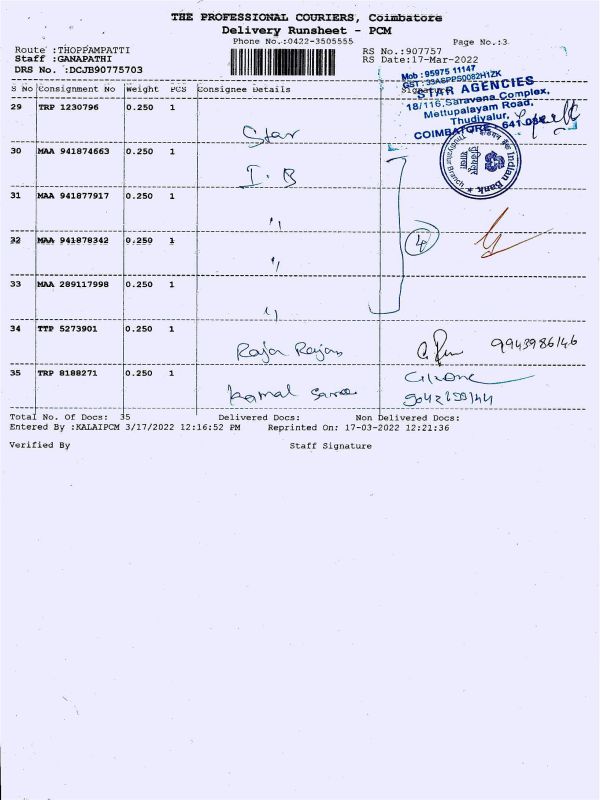 THE PROFESSIONAL COURIERS, Coimbatore
Delivery Runsheet - PCM
Phone No.:0422-3505555
Page No.:3
Route :THOPPAMPATTI
RS No.:907757
Staff :GANAPATHI
RS Date:17-Mar-2022
DRS No. :DCJB90775703
Mob : 95975 11147
GST : 33ASPPS0082H1ZK
STAR AGENCIES
18/116, Saravana Complex,
Mettupalayam Road,
Thudiyalur,
COIMBATORE - 641 034
S No Consignment No Weight PCS Consignee Details Signature
29 TRP 1230796 0.250 1
Star
30 MAA 941874663 0.250 1
I.B
Indian Bank
31 MAA 941877917 0.250 1
"
32 MAA 941878342 0.250 1
"
4
33 MAA 289117998 0.250 1
"
34 TTP 5273901 0.250 1
Raja Rajan
9943986146
35 TRP 8188271 0.250 1
kamal
Total No. Of Docs: 35 Delivered Docs: Non Delivered Docs:
Entered By :KALAIPCM 3/17/2022 12:16:52 PM Reprinted On: 17-03-2022 12:21:36
Verified By Staff Signature